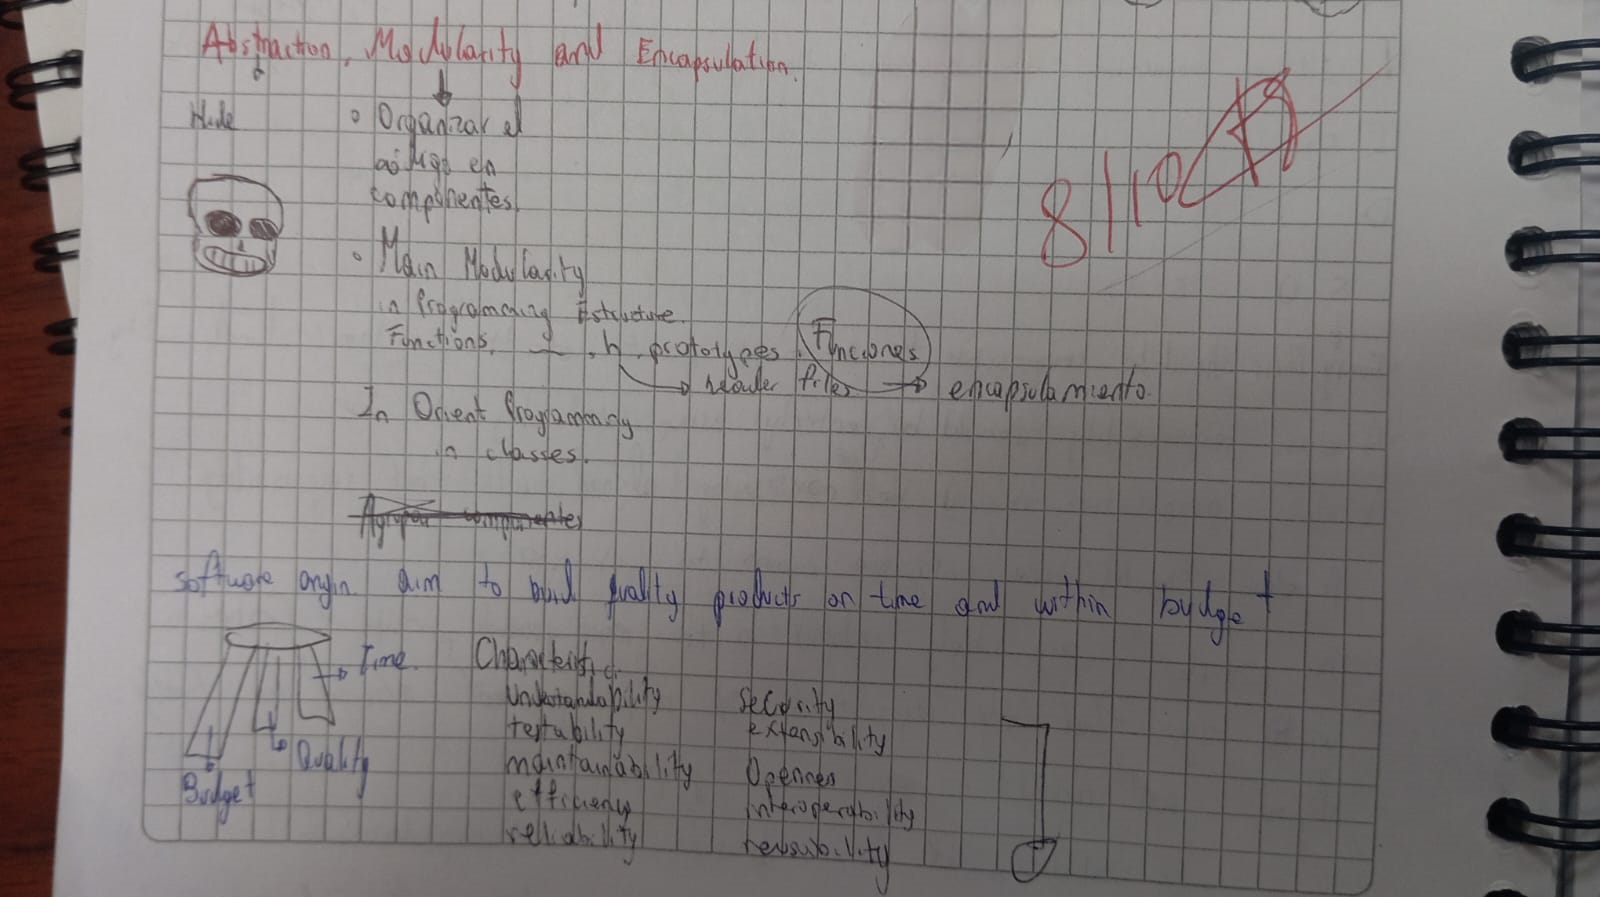 Abstraction, Modularity and Encapsulation.
Hide
Organizar el
código en
componentes.
Main Modularity
in Programming Estructure.
Functions. .h prototypes Funciones
header files → encapsulamiento.
In Orient Programming
in classes.
componentes
8/10
software origin aim to build quality products on time and within budget
Time
Quality
Budget
Characteristic.
Understandability
testability
maintainability
efficiency
reliability
security
extensibility
Opennes
interoperability
reusability